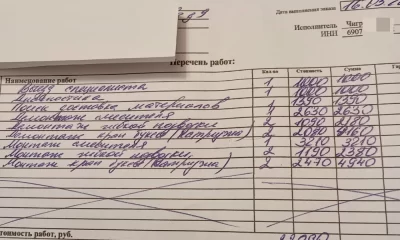 Дата выполнения заказа 16.03.
Исполнитель Чигр
ИНН 6907
Перечень работ:
Наименование работ Кол-во Стоимость Сумма
Выезд специалиста 1 1000 1000
Диагностика 1 1000 1000
Поиск поставка материалов 1 1390 1390
Демонтаж смесителя 1 2630 2630
Демонтаж гибкой подводки 2 1090 2180
Демонтаж кран букса (Катрузна) 2 2080 4160
Монтаж смесителя 1 3210 3210
Монтаж гибкой подводки 2 1190 2380
Монтаж кран букса 2 2470 4940
Стоимость работ, руб.